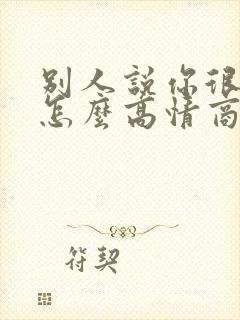 別人說你很
怎麼高情商
符契